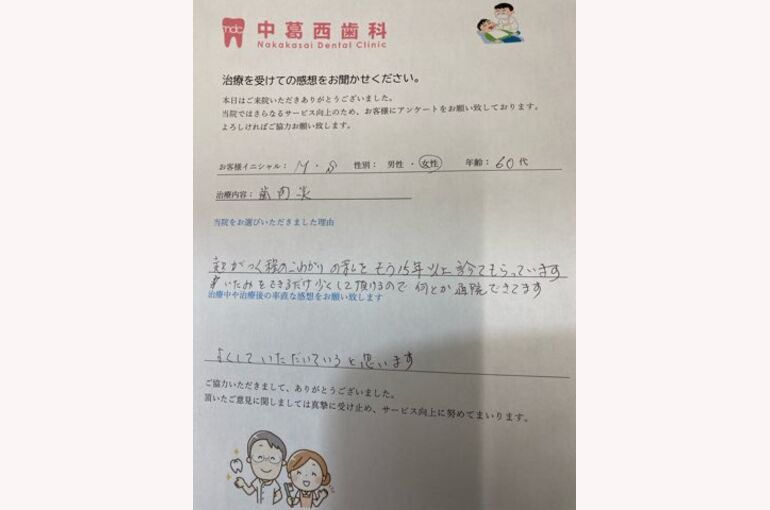 ndc 中葛西歯科
Nakakasai Dental Clinic
治療を受けての感想をお聞かせください。
本日はご来院いただきありがとうございました。
当院ではさらなるサービス向上のため、お客様にアンケートをお願い致しております。
よろしければご協力お願い致します。
お客様イニシャル： M・S 性別： 男性・女性 年齢：60代
治療内容：歯肉炎
当院をお選びいただきました理由
超がつく程のこわがりの私をもう15年以上診てもらっています
いたみをできるだけ少くして頂けるので何とか通院できてます
治療中や治療後の率直な感想をお願い致します
よくしていただいていると思います
ご協力いただきまして、ありがとうございました。
頂いたご意見に関しましては真摯に受け止め、サービス向上に努めてまいります。